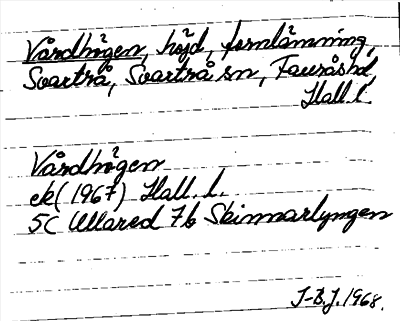 Vårdhögen, höjd, fornlämning,
Svartrå, Svartrå sn, Fauråshd,
Hall. l.
Vårdhögen
ek (1967) Hall. l.
5C Ullared 7b Skinnarlyngen
J-B.J. 1968.